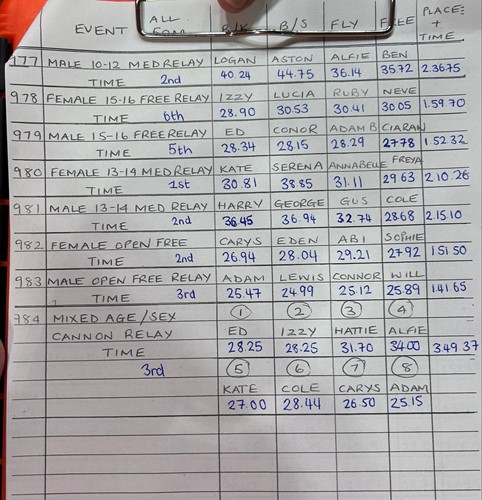 EVENT ALL B/S FLY FREE PLACE: + TIME
977 MALE 10-12 MED RELAY LOGAN ASTON ALFIE BEN
TIME 2nd 40.24 44.75 36.14 35.72 2.36.75
978 FEMALE 15-16 FREE RELAY IZZY LUCIA RUBY NEVE
TIME 6th 28.90 30.53 30.41 30.05 1.59.70
979 MALE 15-16 FREE RELAY ED CONOR ADAM B CIARAN
TIME 5th 28.34 28.15 28.29 27.78 1.52.32
980 FEMALE 13-14 MED RELAY KATE SERENA ANNABELLE FREYA
TIME 1st 30.81 38.85 31.11 29.63 2.10.26
981 MALE 13-14 MED RELAY HARRY GEORGE GUS COLE
TIME 2nd 36.45 36.94 32.74 28.68 2.15.10
982 FEMALE OPEN FREE CARYS EDEN ABI SOPHIE
TIME 2nd 26.94 28.04 29.21 27.92 1.51.50
983 MALE OPEN FREE RELAY ADAM LEWIS CONNOR WILL
TIME 3rd 25.47 24.99 25.12 25.89 1.41.65
784 MIXED AGE/SEX 1 2 3 4
CANNON RELAY ED IZZY HATTIE ALFIE
TIME 28.25 28.25 31.70 34.00 3.49.37
3rd 5 6 7 8
KATE COLE CARYS ADAM
27.00 28.44 26.50 25.15